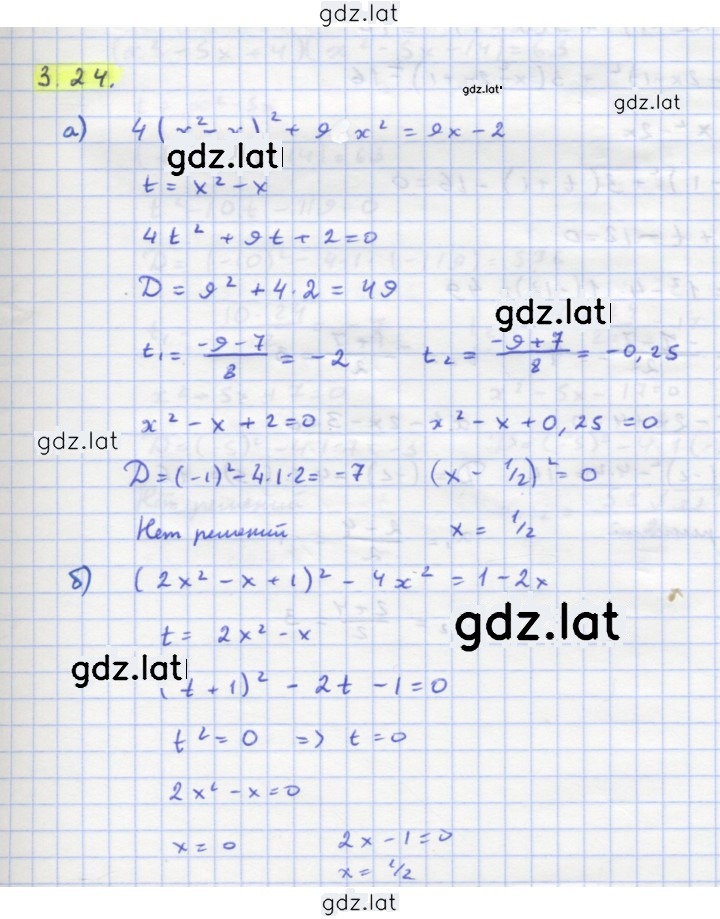 gdz.lat
3.24.
gdz.lat
gdz.lat
а) 4( )² + 9 x² = 9x - 2
gdz.lat
t = x² - x
4t² + 9t + 2 = 0
D = 9² + 4·2 = 49
gdz.lat
t₁ = (-9-7)/8 = -2 t₂ = (-9+7)/8 = -0,25
x² - x + 2 = 0 x² - x + 0,25 = 0
gdz.lat
D = (-1)² - 4·1·2 = -7 (x - 1/2)² = 0
Нет решений x = 1/2
б) (2x² - x + 1)² - 4x² = 1 - 2x
gdz.lat
t = 2x² - x
gdz.lat
(t + 1)² - 2t - 1 = 0
t² = 0 => t = 0
2x² - x = 0
x = 0 2x - 1 = 0
x = 1/2
gdz.lat